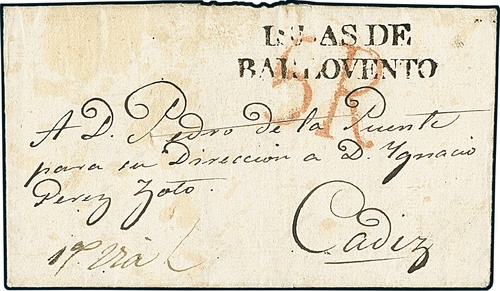 ISLAS DE
BARLOVENTO
5R
A D. Pedro de la Puente
para su Direccion a D. Ygnacio
Perez Zoto.
Cadiz